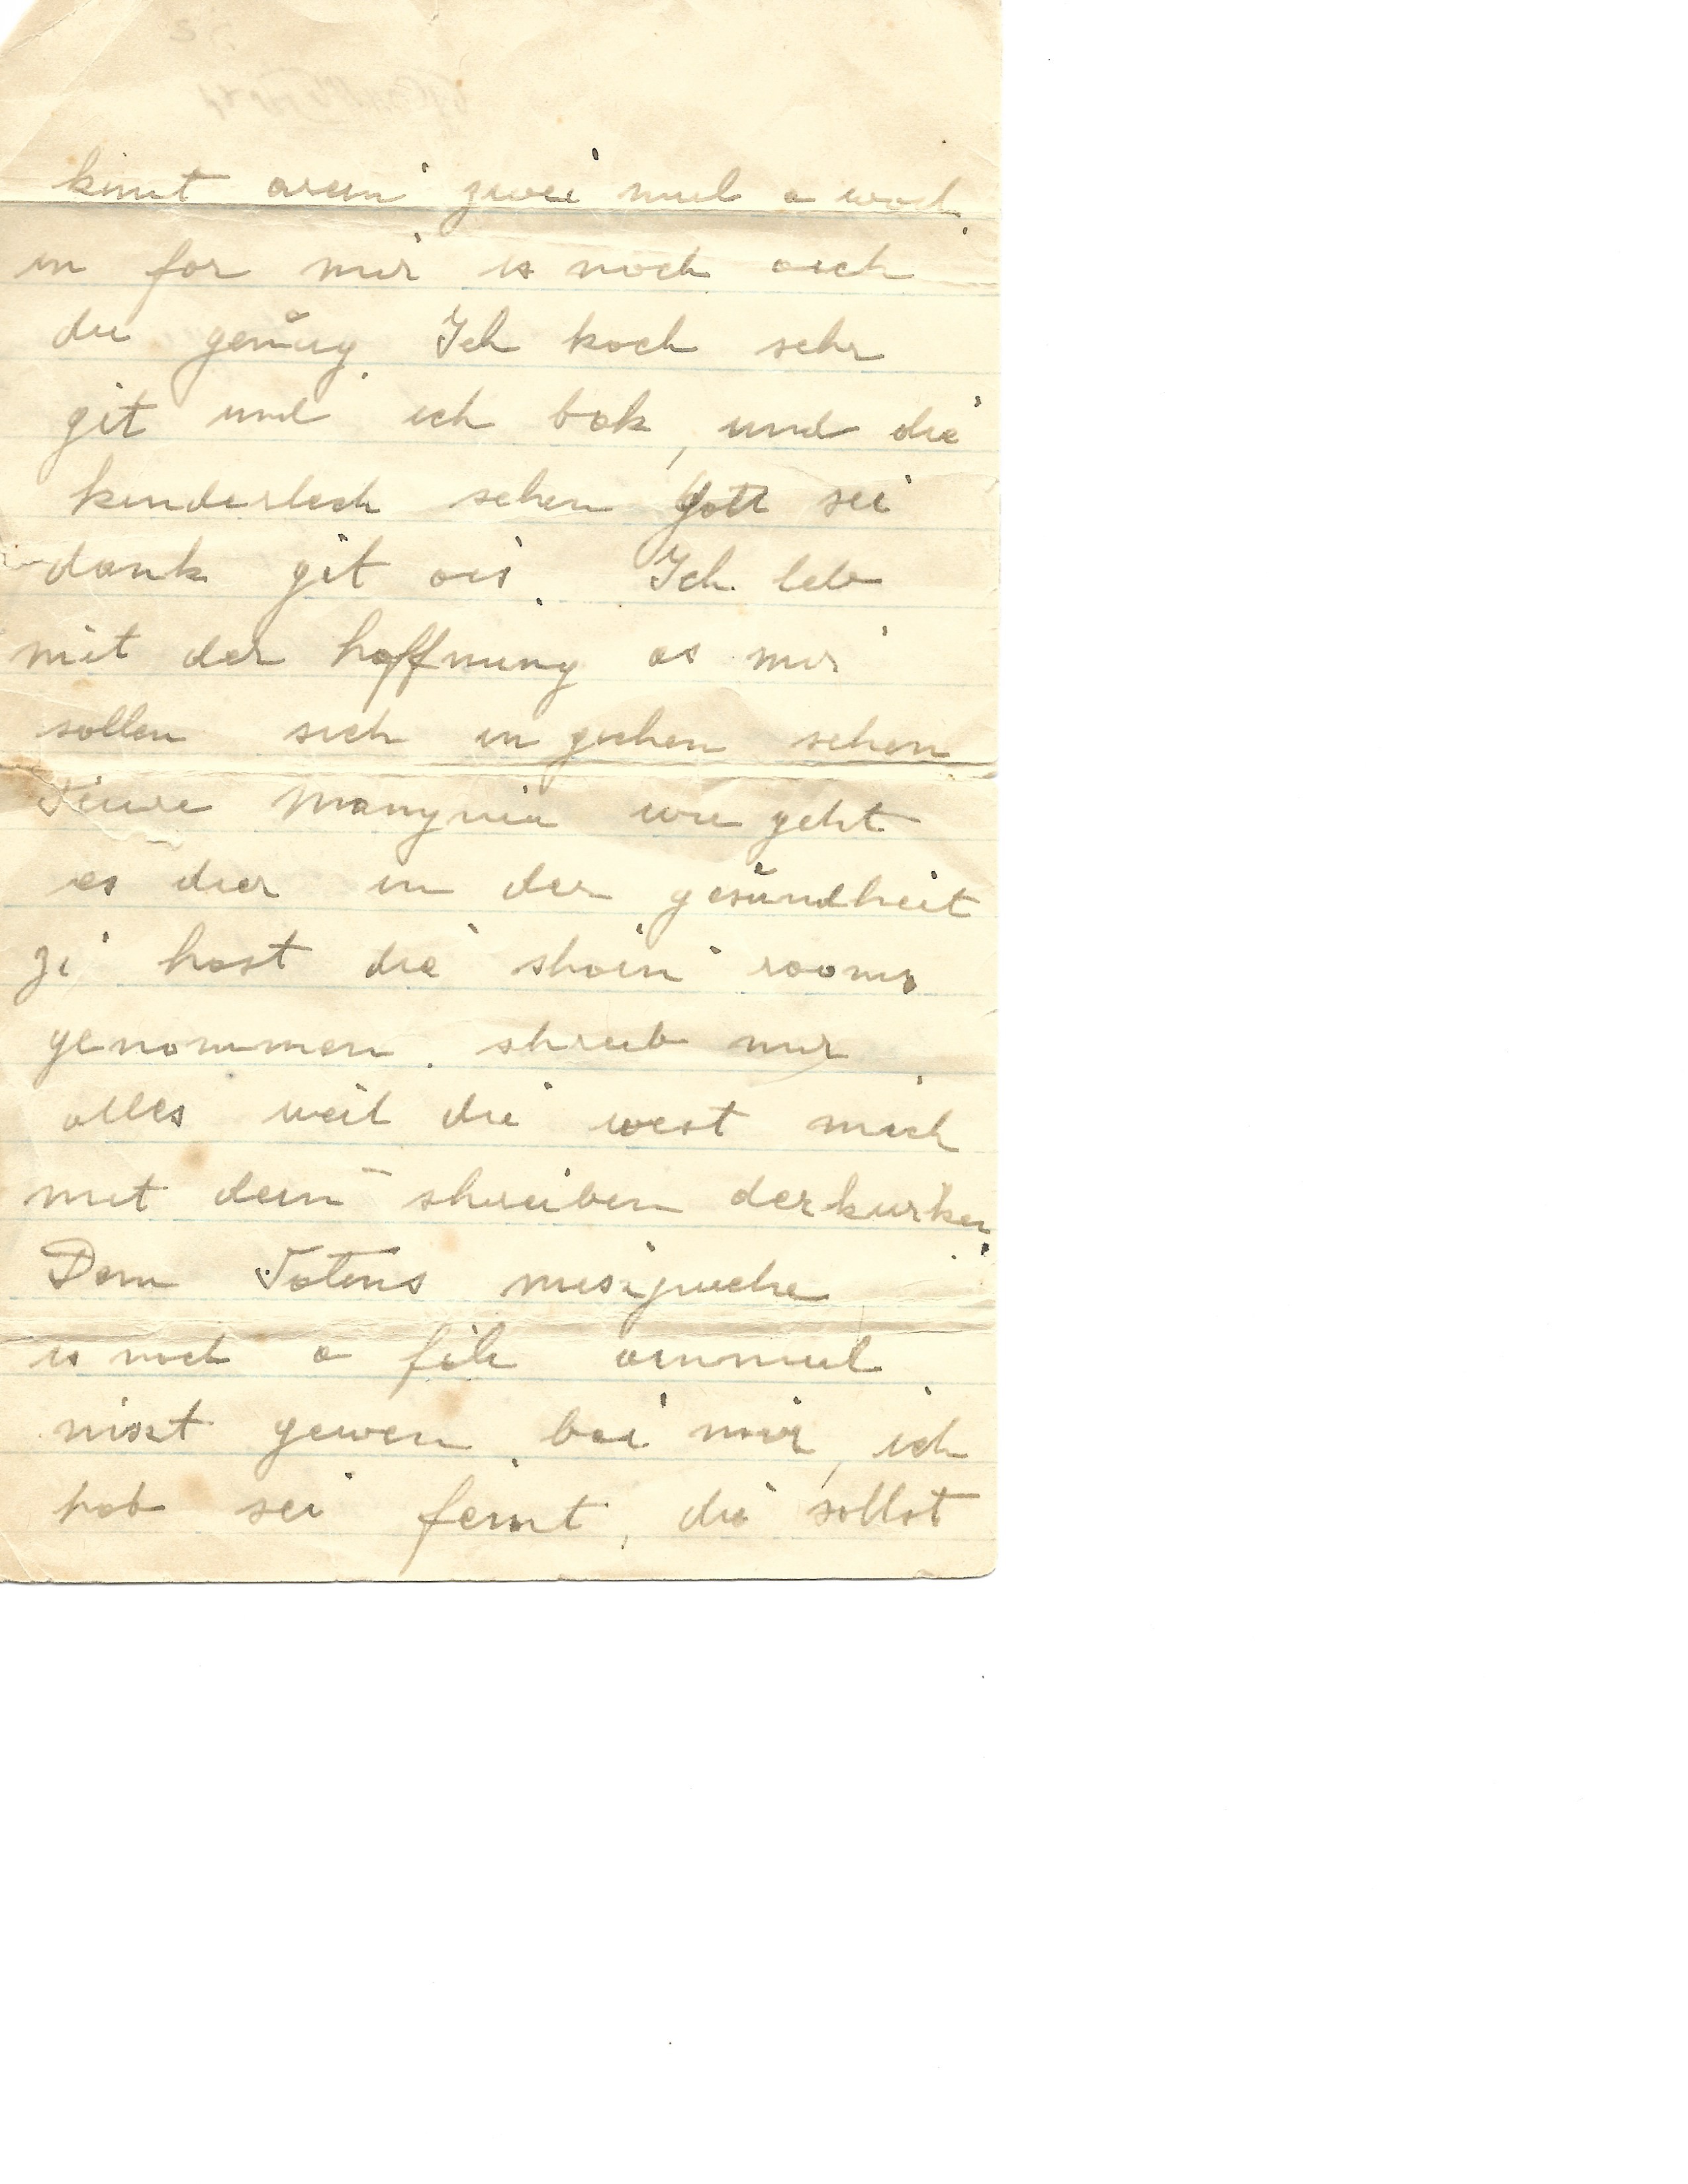 kimt arein zwei mul a woch.
in for mir is noch oich
du genŭg. Ich koch sehr
git und ich bak, und die
kinderlech sehen Gott sei
dank git ois. Ich leb
mit der hoffnung as mir
sollen sich in gichen sehen
Teure Mamynia wie geht
es dier in der gesŭndheit
zi host die shoin rooms
genommen. shreib mir
alles weil die west mich
mit dein shreiben derkwiken.
Dem Tatens misipuche
is noch a file ainmul
niszt gewen bai mir, ich
hob sei feint, die sollst